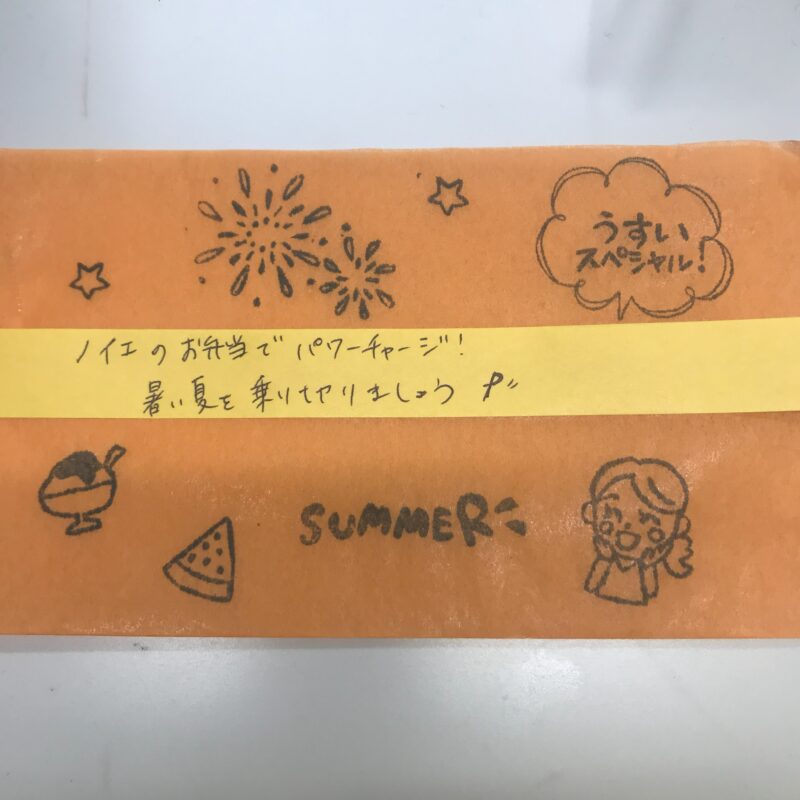 うすい
スペシャル!
ノイエのお弁当でパワーチャージ!
暑い夏を乗りきりましょう
SUMMER